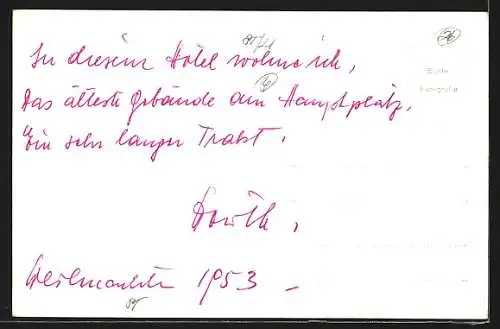 In diesem Hotel wohne ich,
Das älteste Gebäude am Hauptplatz.
Ein sehr langer Trakt.
Echte
Fotografie
Weihnachten 1953 –